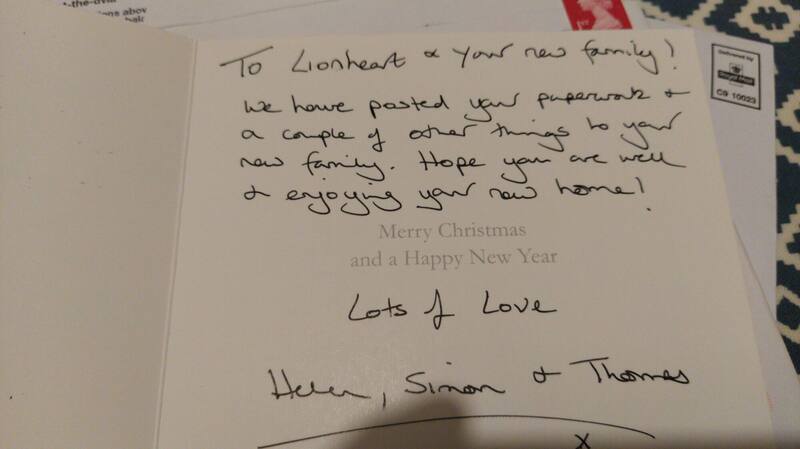 To Lionheart & your new family!
We have posted your paperwork &
a couple of other things to your
new family. Hope you are well
& enjoying your new home!
Merry Christmas
and a Happy New Year
Lots of Love
Helen, Simon & Thomas
x
Delivered by
Royal Mail
C9 10023
1st